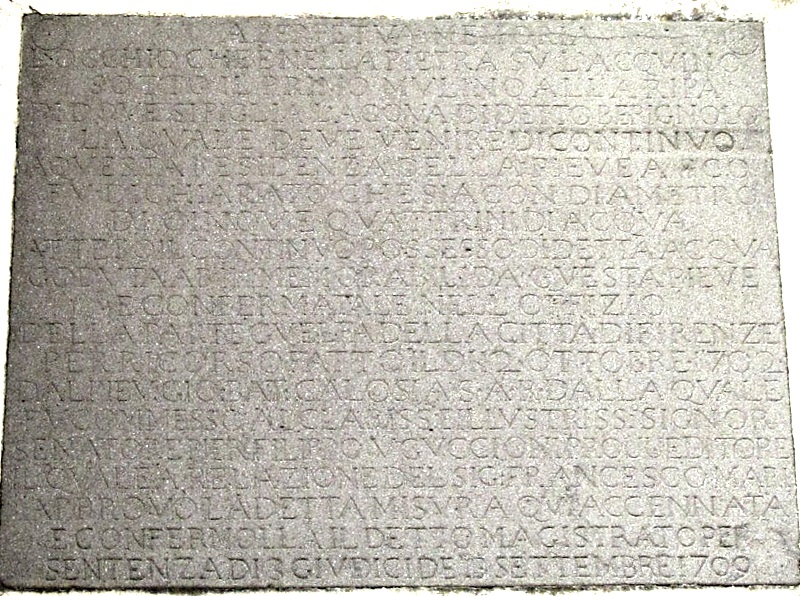 A PERPETUA MEMORIA
L'OCCHIO CHE È NELLA PIETRA SUL ACQUINO
SOTTO IL PRIMO MULINO ALLA RIPA
DI DOVE SI PIGLIA L'ACQVA DI DETTO BERIGNOLO
LA QVALE DEVE VENIRE DI CONTINVO
A QVESTA RESIDENZA DELLA PIEVE A
FV DICHIARATO CHE SIA CON DIAMETRO
DI CINQVE QVATTRINI DI ACQVA
ATTESO IL CONTINVO POSSESSO DI DETTA ACQVA
GODVTA AB IMMEMORABILI DA QVESTA PIEVE
CONFERMA TALE NELL OFFIZIO
DELLA PARTE GVELFA DELLA CITTA DI FIRENZE
PER RICORSO FATTO IL DI 12 OTTOBRE 1702
DAL PIEV. GIO. BAT. GALOSI A S.A.R. DALLA QVALE
FV COMMESSO AL CLARISS. E ILLVSTRISS. SIGNOR
SENATORE PIER FILIPPO VGVCCIONI PROVEDITORE
IL QVALE A RELAZIONE DEL SIG. FRANCESCO MAR
APPROVO LA DETTA MISVRA QVI ACCENNATA
E CONFERMOLLA IL DETTO MAGISTRATO PER
SENTENZA DI 3 GIVDICI DE 13 SETTEMBRE 1709